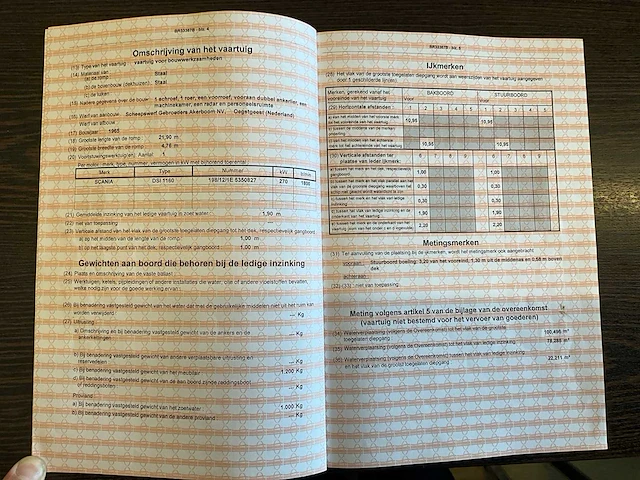 BR53367B - blz. 4
Omschrijving van het vaartuig
(13) Type van het vaartuig : vaartuig voor bouwwerkzaamheden
(14) Materiaal van
a) de romp : Staal
b) de bovenbouw (dekhuizen) : Staal
c) de luiken :
(15) Nadere gegevens over de bouw : 1 schroef, 1 roer, een voormoer, vooraan dubbel ankerlier, een
machinekamer, een radar en personeelsruimte
(16) Werf van aanbouw : Scheepswerf Gebroeders Akerboom NV, - Oegstgeest (Nederland)
Werf van afbouw :
(17) Bouwjaar : 1965
(18) Grootste lengte van de romp : 21,90 m
(19) Grootste breedte van de romp : 4,76 m
(20) Voortstuwingswerktuig(en) : Aantal : 1
Per motor : merk, type, nummer, vermogen in kW met bijhorend toerental :
Merk Type Nummer kW t/min
SCANIA DSI 1160 270 1800
(21) Gemiddelde inzinking van het ledige vaartuig in zoet water : 1,90 m
(22) niet van toepassing
(23) Verticale afstand van het vlak van de grootste toegelaten diepgang tot het dek, respectievelijk gangboord
a) op het midden van de lengte van de romp 1,00 m
b) op het laagste punt van het dek, respectievelijk gangboord 1,00 m
Gewichten aan boord die behoren bij de ledige inzinking
(24) Plaats en omschrijving van de vaste ballast :
(25) Werktuigen, ketels, pijpleidingen of andere installaties die water, olie of andere vloeistoffen bevatten,
welke nodig zijn voor de goede werking ervan :
(26) Bij benadering vastgesteld gewicht van het water dat met de gebruikelijke middelen niet uit het ruim kan
worden verwijderd --- Kg
(27) Uitrusting :
a) Omschrijving en bij benadering vastgesteld gewicht van de ankers en de
ankerkettingen --- Kg
b) Bij benadering vastgesteld gewicht van andere verplaatsbare uitrusting en
reservedelen --- Kg
c) Bij benadering vastgesteld gewicht van het meubilair 1.200 Kg
d) Bij benadering vastgesteld gewicht van de aan boord zijnde reddingsboot
of reddingsboten --- Kg
Proviand :
a) Bij benadering vastgesteld gewicht van het zoetwater 1.000 Kg
b) Bij benadering vastgesteld gewicht van de andere proviand --- Kg
BR53367B - blz. 5
IJkmerken
(28) Het vlak van de grootste toegelaten diepgang wordt aan weerszijden van het vaartuig aangegeven
door 5 geschilderde lijn(en)
Merken, gerekend vanaf het
vooreinde van het vaartuig BAKBOORD STUURBOORD
voor voor
(29) Horizontale afstanden : 1 2 3 4 5 1 2 3 4 5
10,95 10,95
10,95 10,95
(30) Verticale afstanden ter
plaatse van ieder ijkmerk : 6 7 8 9 6 7 8 9
1,00 1,00
0,30 0,30
0,30 0,30
1,90 1,90
2,20 2,20
Metingsmerken
(31) Ter aanvulling van de plaatsing bij de ijkmerken, wordt het metingsmerk ook aangebracht
vooraan : Stuurboord boeling: 3,20 van het vooreind, 1,30 m uit de middenas en 0,58 m boven
dek.
achteraan :
(32) (33) : niet van toepassing
Meting volgens artikel 5 van de bijlage van de overeenkomst
(vaartuig niet bestemd voor het vervoer van goederen)
(34) Waterverplaatsing (volgens de Overeenkomst) tot het vlak van de grootste
toegelaten diepgang 100,496 m³
(35) Waterverplaatsing (volgens de Overeenkomst) tot het vlak van ledige inzinking 78,285 m³
(36) Waterverplaatsing (volgens de Overeenkomst) tussen het vlak van ledige inzinking
en het vlak van de grootst toegelaten diepgang 22,211 m³